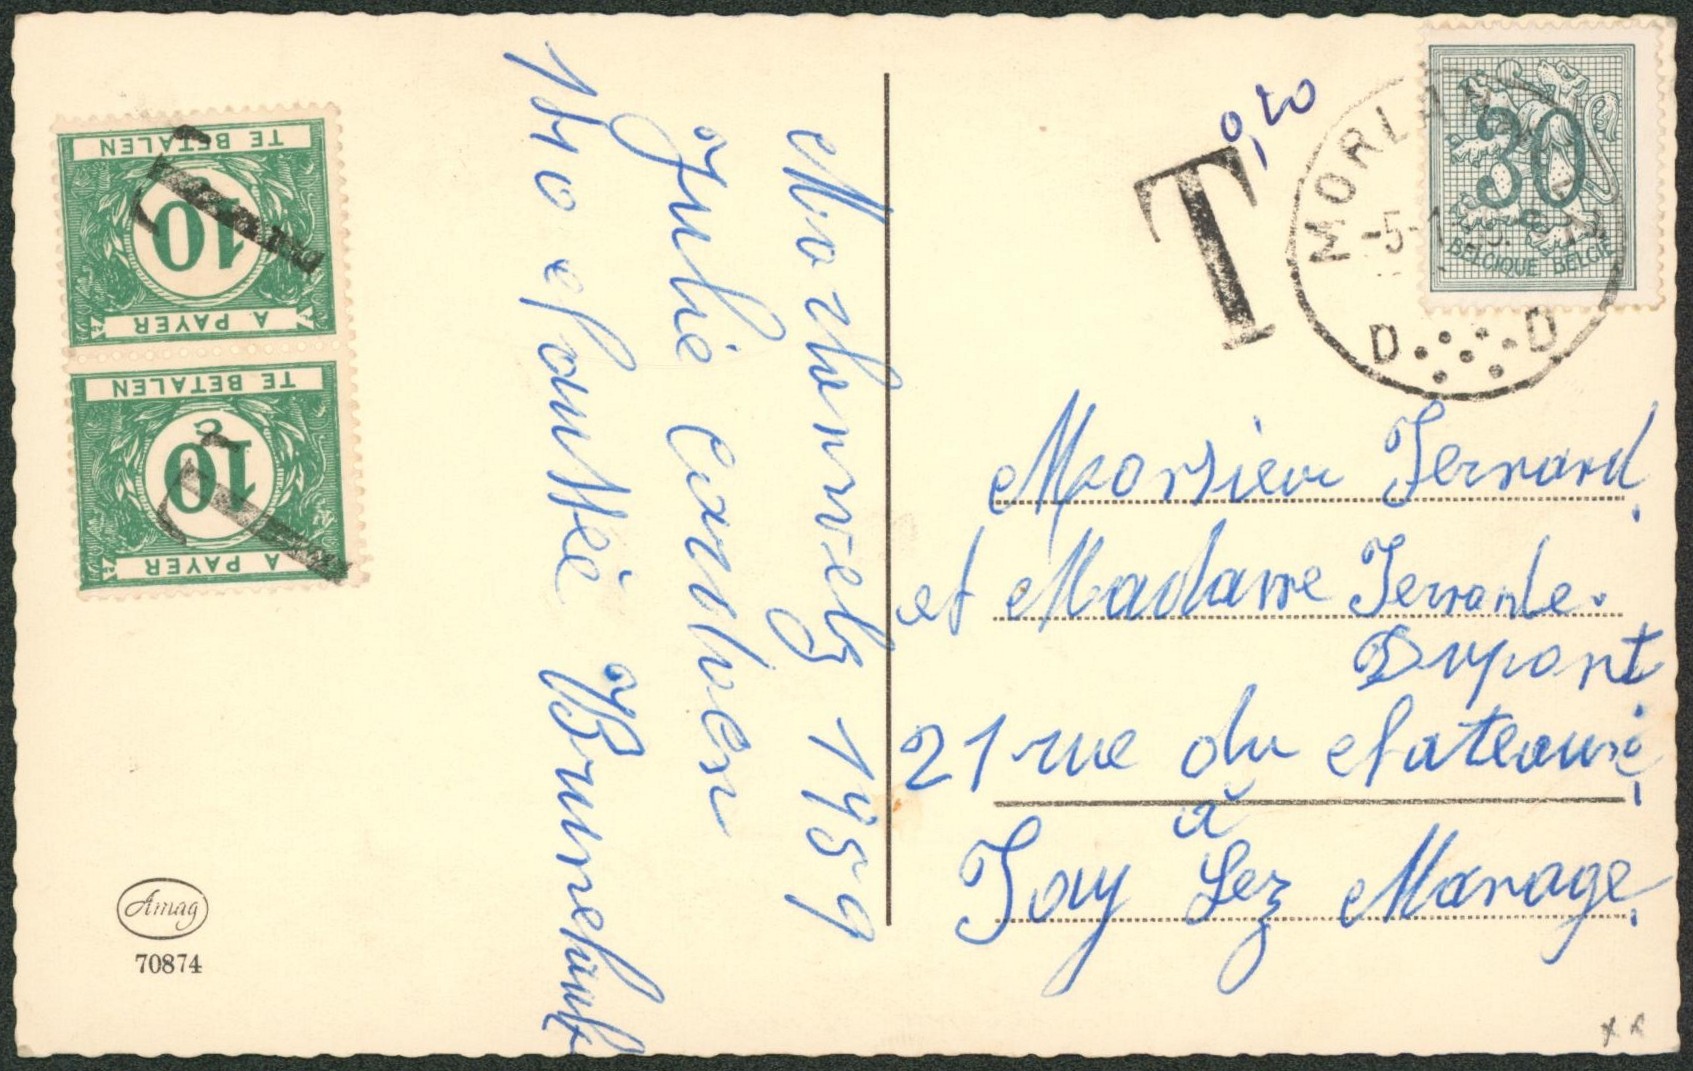 TE BETALEN
10 c
A PAYER
TE BETALEN
10 c
A PAYER
Morlanwelz 1959
Julie Cambier
140 chaussée Brunehault
Amag
70874
T
0,20
MORLA
-5-1
D D
30
BELGIQUE BELGIË
Monsieur Fernand
et Madame Fernande.
Dupont
21 rue du chateau
à
Fay Lez Manage